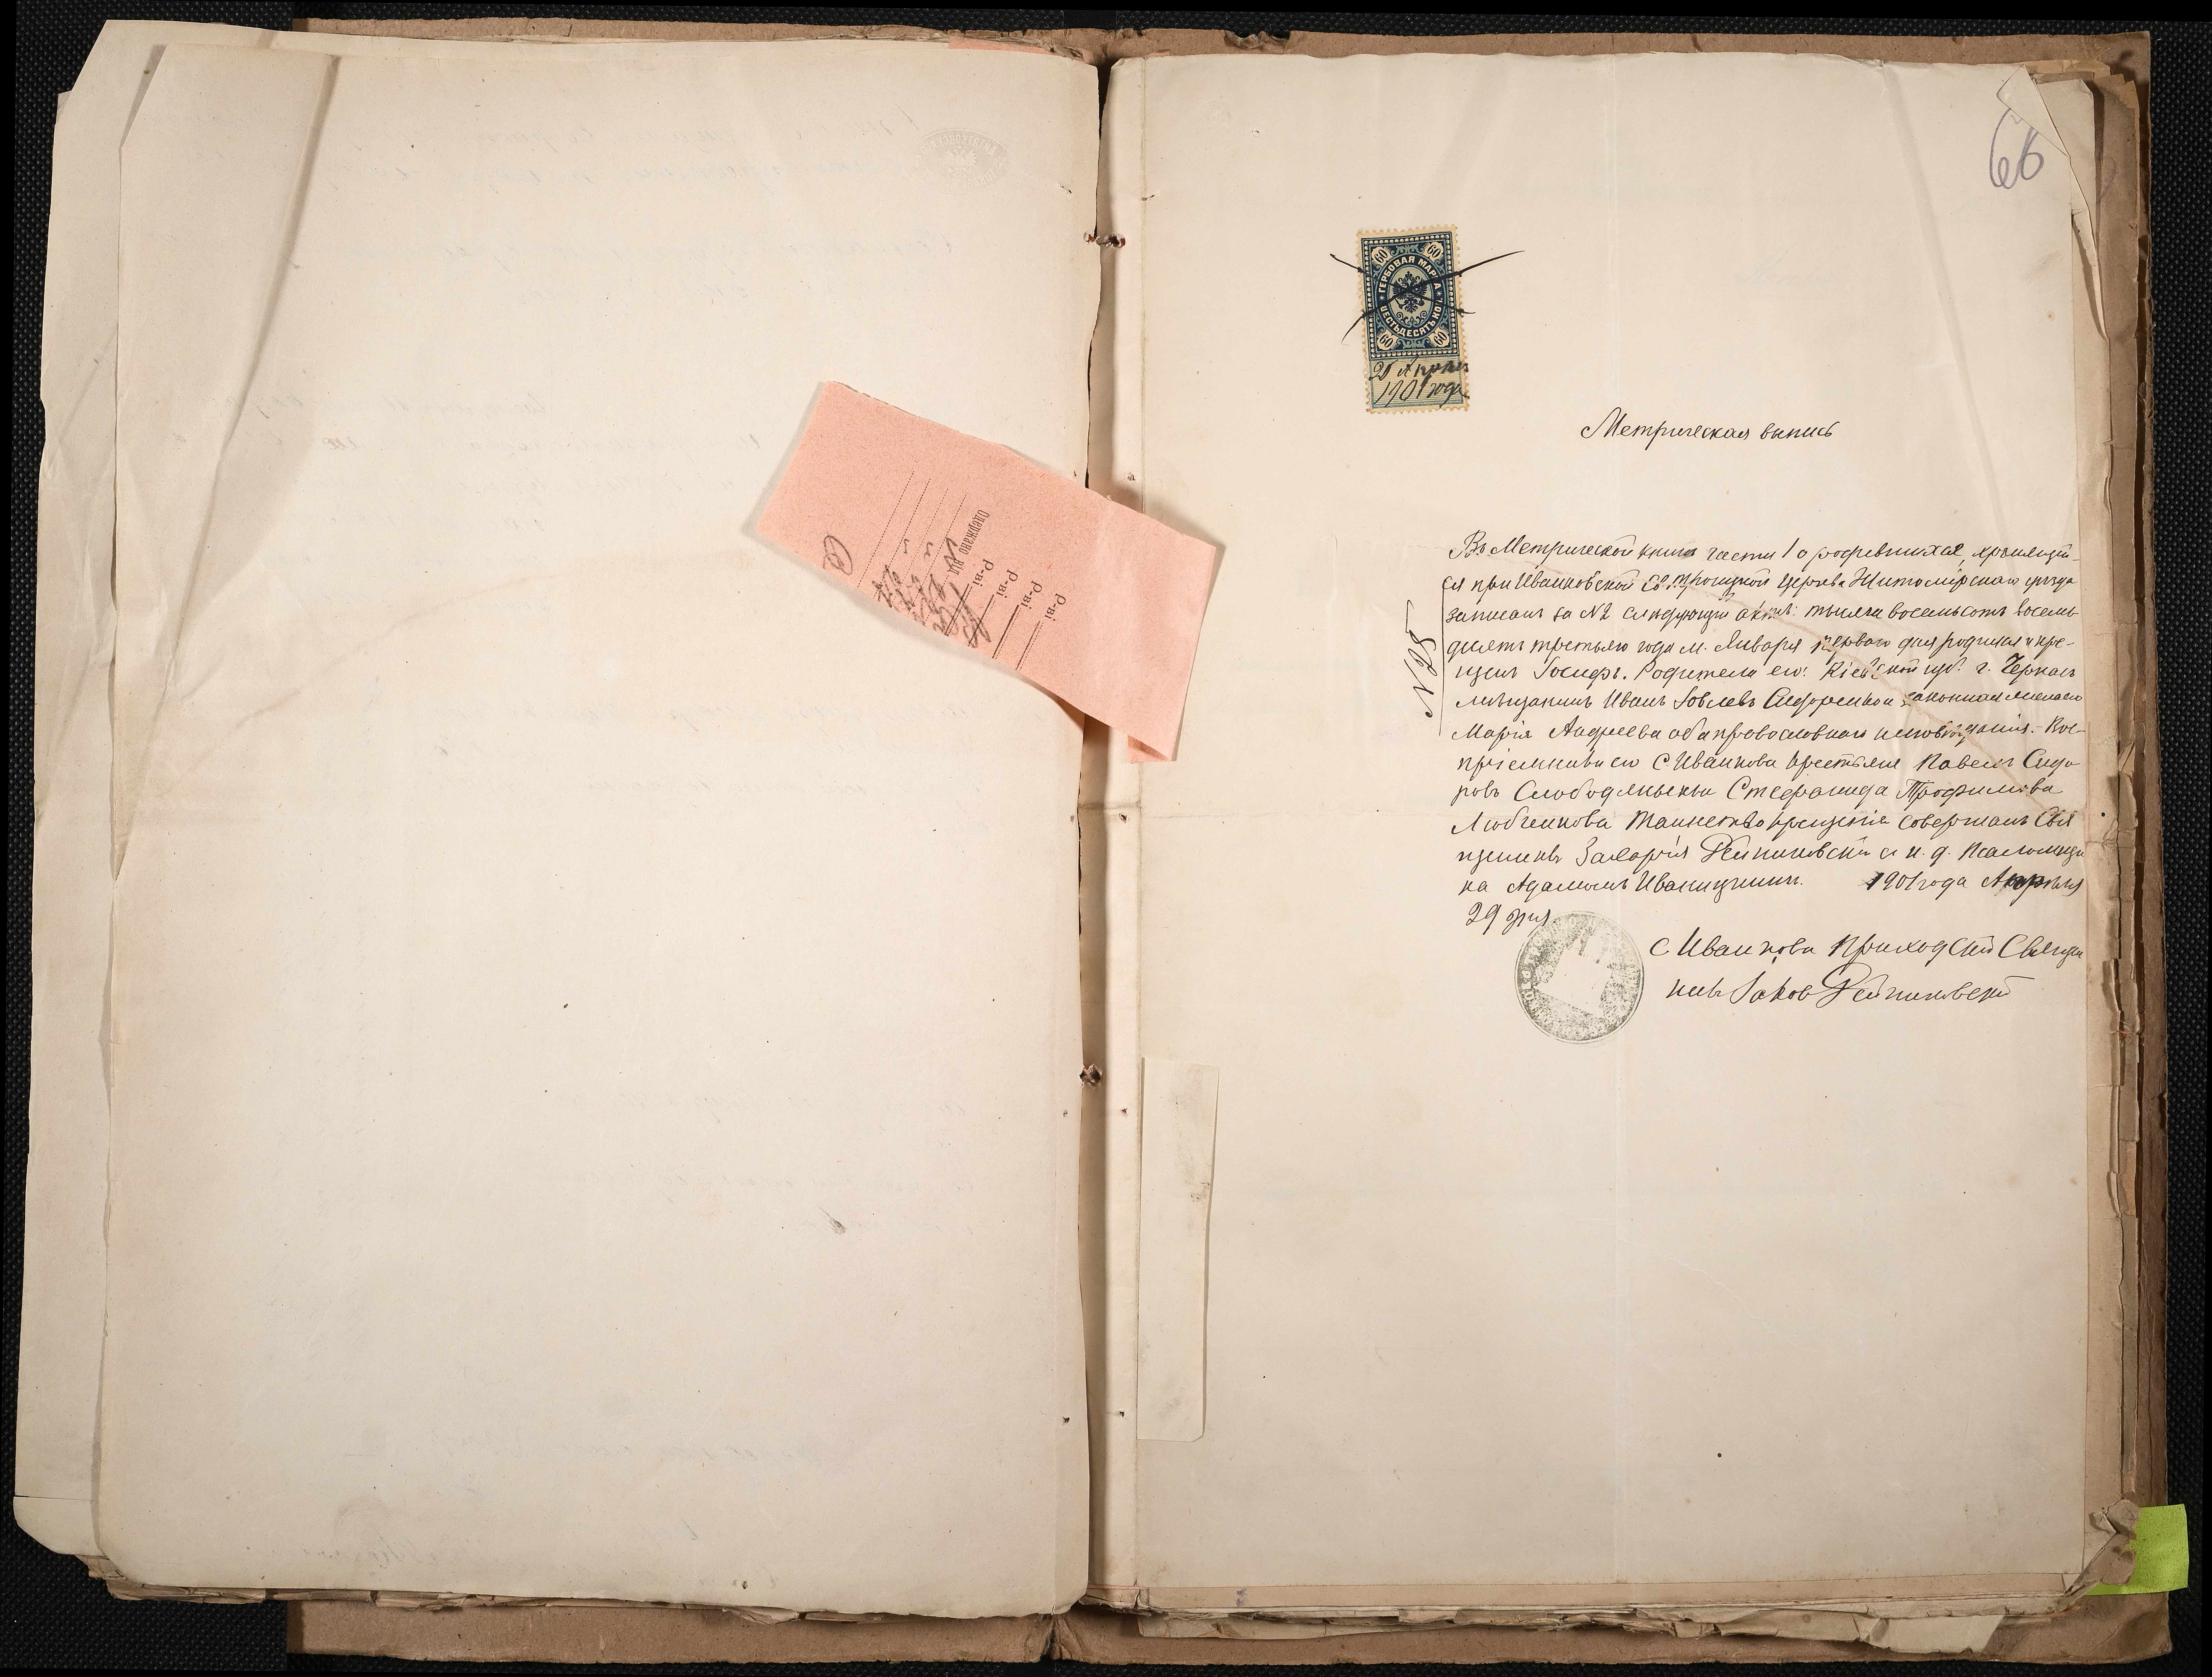 66
60 60
ГЕРБОВАЯ МАРКА
ШЕСТЬДЕСЯТЬ КОП.
60 60
29 Апреля
1901 года
Метрическая выпись
Въ Метрической книге части 1 о родившихся, хранящей-
ся при Иванковской Св. Троицкой церкви Житомірскаго уезда
записанъ за №2 следующій актъ: тысяча восемьсотъ восемь-
десятъ третьяго года м. Января перваго дня родился и кре-
щенъ Іосифъ. Родители его: Кіевской губ. г. Черкасъ
мещанинъ Иванъ Іовлевъ Сидоренко и законная жена его
Марія Андреева оба православнаго исповеданія. Вос-
пріемники его С. Иванкова крестьяне Павелъ Сидо-
ровъ Слободянык и Стефанида Трофимова
Любченкова Таинство крещенія совершалъ Свя
щенникъ Захарія съ и. д. Псаломщи
ка Адамомъ Иваницкимъ. 1901 года Апреля
29 дня.
С Иванкова Приходскій Священ
никъ Іаков
№28
Одержано від
Р-ві
Р-ві
Р-ві